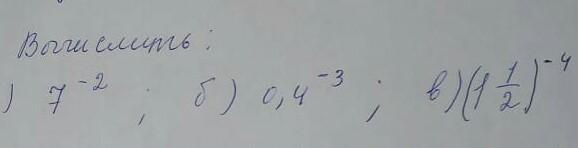 Вычислить:
) 7⁻² ; б) 0,4⁻³ ; в) (1 1/2)⁻⁴